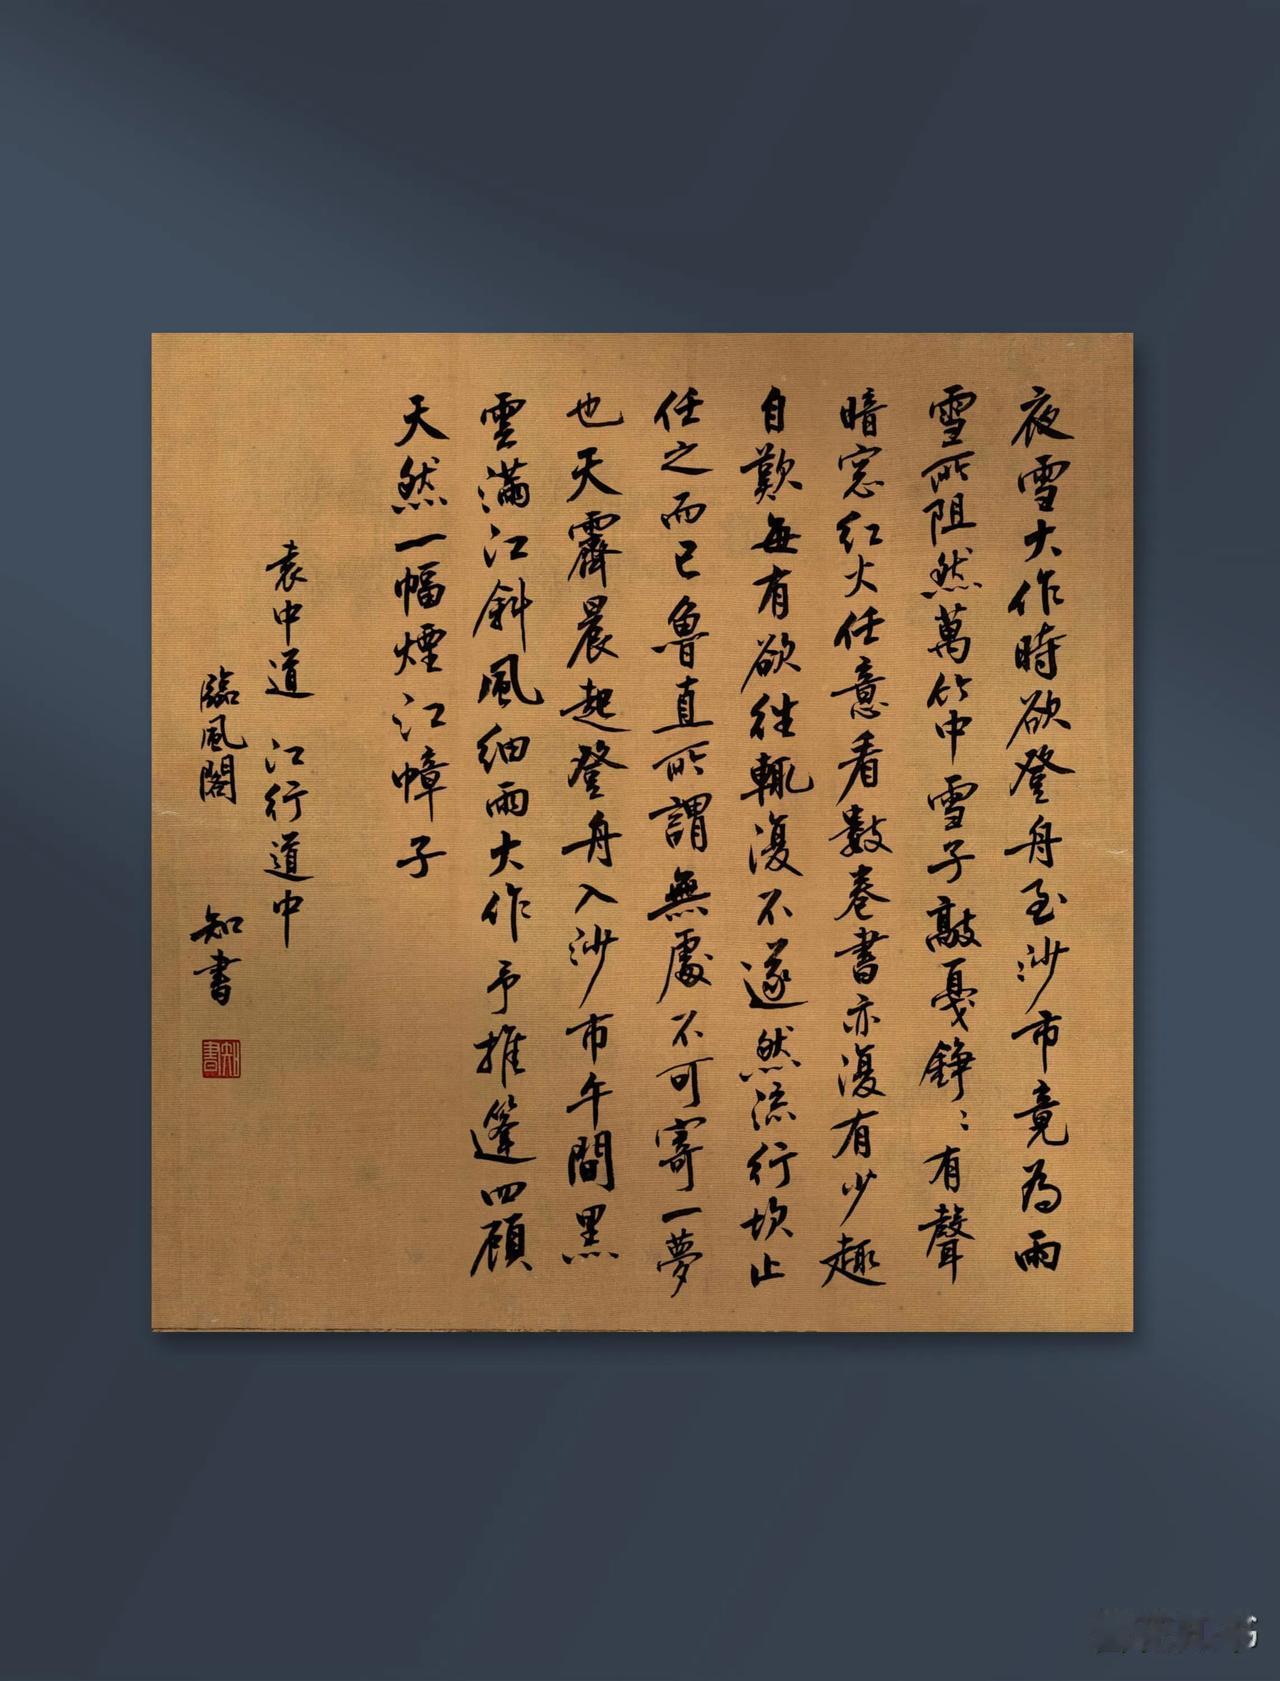 夜雪大作時欲登舟至沙市竟為雨
雪所阻然萬竹中雪子敲戛錚〻有聲
暗窓紅火任意看數卷書亦復有少趣
自歎每有欲往輒復不遂然流行坎止
任之而已魯直所謂無處不可寄一夢
也天霽晨起登舟入沙市午間黑
雲滿江斜風細雨大作予推篷四顧
天然一幅煙江幛子
袁中道 江行道中
臨風閣 知書
知書